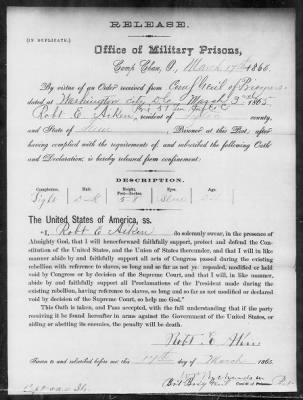 RELEASE.
(IN DUPLICATE.)
Office of Military Prisons,
Camp Chase, O., March 17th 1865.
By virtue of an Order received from Com'y Gen'l of Prisoners
dated at Washington City D.C. March 3rd 1865
Robt E. Aiken, resident of county,
and State of Prisoner at this Post, after
having complied with the requirement of, and subscribed the following Oath
and Declaration, is hereby released from confinement:
DESCRIPTION.
Complexion. Hair. Height. Feet—Inches. Eyes. Age.
Light 5 8 Blue
The United States of America, ss.
I, Robt E. Aiken do solemnly swear, in the presence of
Almighty God, that I will henceforward faithfully support, protect and defend the Con-
stitution of the United States, and the Union of States thereunder, and that I will in like
manner abide by and faithfully support all acts of Congress passed during the existing
rebellion with reference to slaves, so long and so far as not yet repealed, modified or held
void by Congress or by decision of the Supreme Court, and that I will, in like manner,
abide by and faithfully support all Proclamations of the President made during the
existing rebellion, having reference to slaves, so long and so far as not modified or declared
void by decision of the Supreme Court, so help me God."
This Oath is taken, and Pass accepted, with the full understanding that if the party
receiving it be found hereafter in arms against the Government of the United States, or
aiding or abetting its enemies, the penalty will be death.
Robt E Aiken
Sworn to and subscribed before me this 17th day of March 1865.
W. P. Richardson